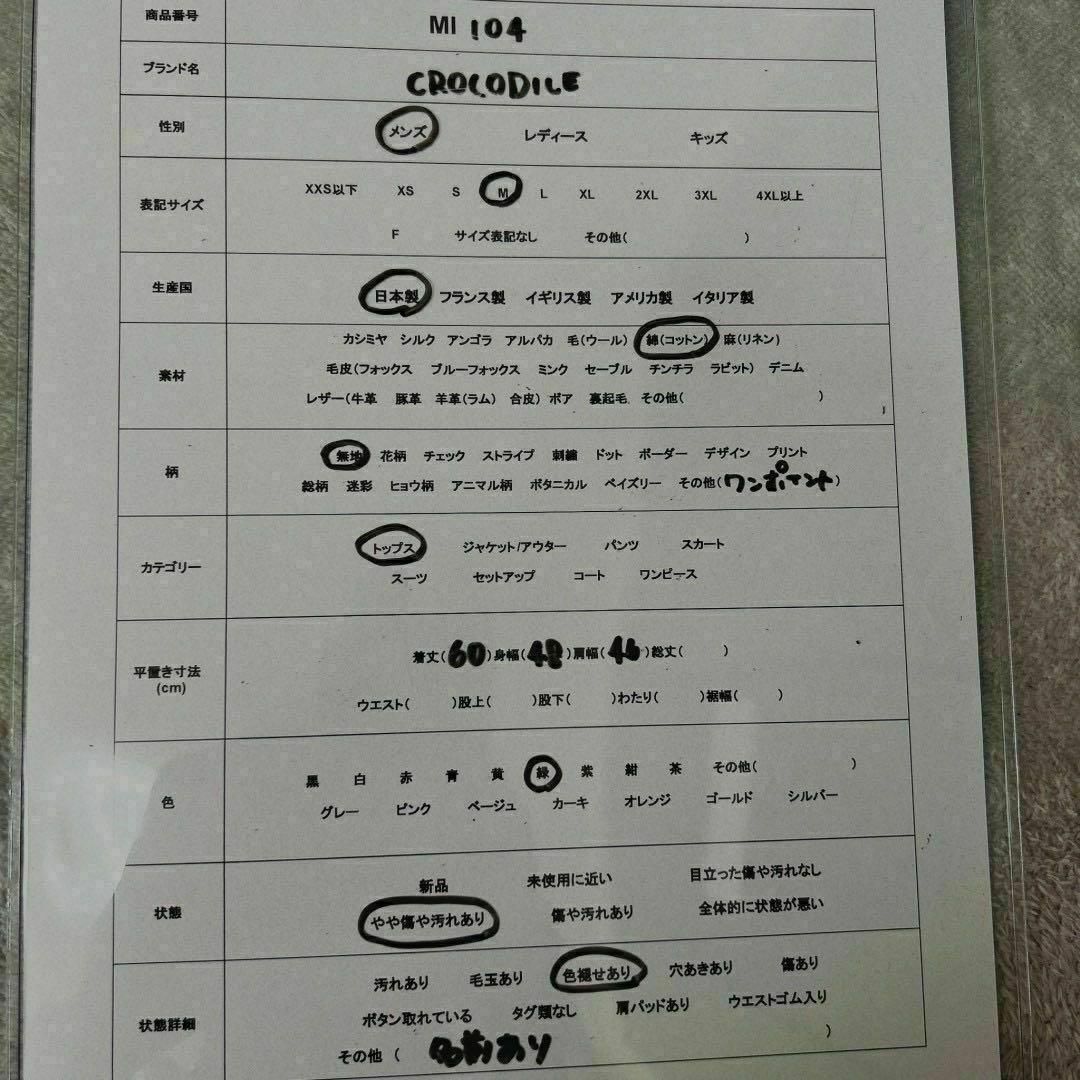 商品番号 MI 104
ブランド名 CROCODILE
性別 メンズ レディース キッズ
XXS以下 XS S M L XL 2XL 3XL 4XL以上
表記サイズ
F サイズ表記なし その他( )
生産国 日本製 フランス製 イギリス製 アメリカ製 イタリア製
カシミヤ シルク アンゴラ アルパカ 毛(ウール) 綿(コットン) 麻(リネン)
素材 毛皮(フォックス ブルーフォックス ミンク セーブル チンチラ ラビット) デニム
レザー(牛革 豚革 羊革(ラム) 合皮) ボア 裏起毛 その他( )
柄 無地 花柄 チェック ストライプ 刺繍 ドット ボーダー デザイン プリント
総柄 迷彩 ヒョウ柄 アニマル柄 ボタニカル ペイズリー その他(ワンポイント)
トップス ジャケット/アウター パンツ スカート
カテゴリー
スーツ セットアップ コート ワンピース
着丈(60)身幅(48)肩幅(46)総丈( )
平置き寸法
(cm)
ウエスト( )股上( )股下( )わたり( )裾幅( )
黒 白 赤 青 黄 緑 紫 紺 茶 その他( )
色
グレー ピンク ベージュ カーキ オレンジ ゴールド シルバー
新品 未使用に近い 目立った傷や汚れなし
状態 やや傷や汚れあり 傷や汚れあり 全体的に状態が悪い
汚れあり 毛玉あり 色褪せあり 穴あきあり 傷あり
状態詳細 ボタン取れている タグ類なし 肩パッドあり ウエストゴム入り
その他 ( 名前あり )